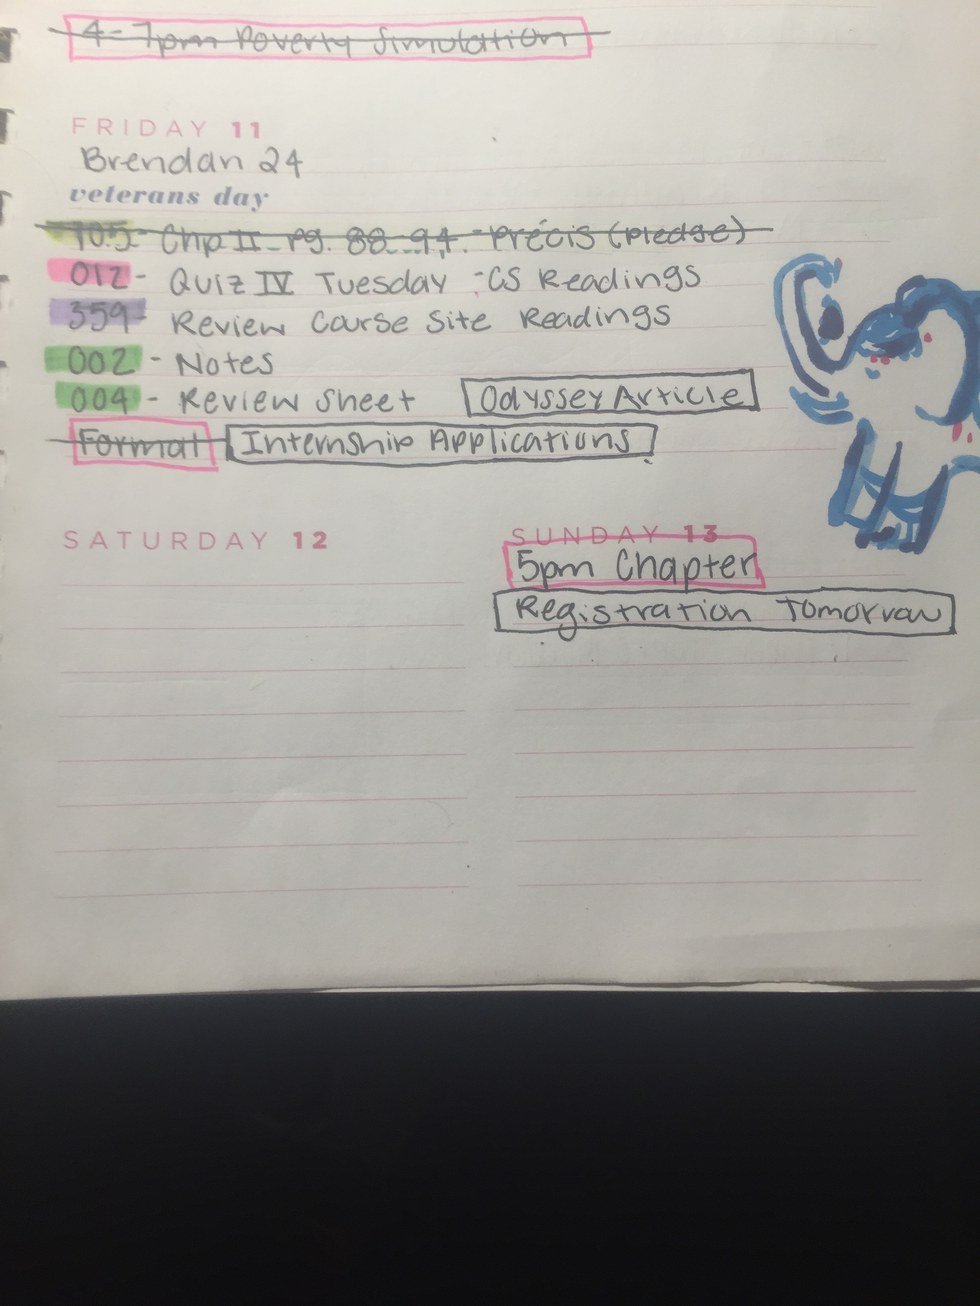 4-7pm Poverty Simulation
FRIDAY 11
Brendan 24
veterans day
105- Chp II - Pg. 88-94 - Précis (Pledge)
012 - Quiz IV Tuesday - CS Readings
359- Review Course Site Readings
002 - Notes
004 - Review Sheet Odyssey Article
Formal Internship Applications
SATURDAY 12
SUNDAY 13
5pm Chapter
Registration Tomorrow